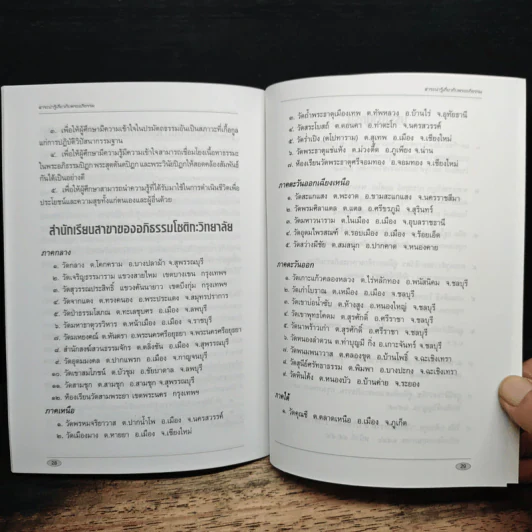 สาระน่ารู้เกี่ยวกับพระอภิธรรม
๓. เพื่อให้ผู้ศึกษามีความเข้าใจในปรมัตถธรรมอันเป็นสภาวะที่เกื้อกูล
แก่การปฏิบัติวิปัสสนากรรมฐาน
๔. เพื่อให้ผู้ศึกษามีความรู้มีความเข้าใจสามารถเชื่อมโยงเนื้อหาธรรมะ
ในพระอภิธรรมปิฎก พระสุตตันตปิฎก และพระวินัยปิฎกให้สอดคล้องสัมพันธ์
กันได้เป็นอย่างดี
๕. เพื่อให้ผู้ศึกษาสามารถนำความรู้ที่ได้รับมาใช้ในการดำเนินชีวิตเพื่อ
ประโยชน์และความสุขทั้งแก่ตนเองและผู้อื่นด้วย
สำนักเรียนสาขาของอภิธรรมโชติกะวิทยาลัย
ภาคกลาง
๑. วัดกลาง ต.โคกคราม อ.บางปลาม้า จ.สุพรรณบุรี
๒. วัดเจริญธรรมาราม แขวงสายไหม เขตบางเขน กรุงเทพฯ
๓. วัดสุวรรณประสิทธิ์ แขวงคันนายาว เขตบึงกุ่ม กรุงเทพฯ
๔. วัดจากแดง ต.ทรงคนอง อ.พระประแดง จ.สมุทรปราการ
๕. วัดป่าธรรมโสภณ ต.ทะเลชุบศร อ.เมือง จ.ลพบุรี
๖. วัดมหาธาตุวรวิหาร ต.หน้าเมือง อ.เมือง จ.ราชบุรี
๗. วัดมเหยงคณ์ ต.หันตรา อ.พระนครศรีอยุธยา จ.พระนครศรีอยุธยา
๘. สำนักสงฆ์สวนธรรมจักร ต.ตลิ่งชัน อ.เมือง จ.สุพรรณบุรี
๙. วัดอุดมมงคล ต.ปากแพรก อ.เมือง จ.กาญจนบุรี
๑๐. วัดเขาสมโภชน์ ต.บัวชุม อ.ชัยบาดาล จ.ลพบุรี
๑๑. วัดสามชุก ต.สามชุก อ.สามชุก จ.สุพรรณบุรี
๑๒. ห้องเรียนวัดสามพระยา เขตพระนคร กรุงเทพฯ
ภาคเหนือ
๑. วัดพรหมจริยาวาส ต.ปากน้ำโพ อ.เมือง จ.นครสวรรค์
๒. วัดเมืองมาง ต.หายยา อ.เมือง จ.เชียงใหม่
28
สาระน่ารู้เกี่ยวกับพระอภิธรรม
๓. วัดถ้ำพระธาตุเมืองเทพ ต.ทัพหลวง อ.บ้านไร่ จ.อุทัยธานี
๔. วัดสระโบสถ์ ต.ดอนคา อ.ท่าตะโก จ.นครสวรรค์
๕. วัดร่ำเปิง (ตโปทาราม) ต.สุเทพ อ.เมือง จ.เชียงใหม่
๖. วัดพระธาตุแช่แห้ง ต.ม่วงตึ๊ด อ.ภูเพียง จ.น่าน
๗. ห้องเรียนวัดพระธาตุศรีจอมทอง อ.จอมทอง จ.เชียงใหม่
ภาคตะวันออกเฉียงเหนือ
๑. วัดสะแกแสง ต.พะงาด อ.ขามสะแกแสง จ.นครราชสีมา
๒. วัดพรมศิลาแตล ต.แตล อ.ศรีขรภูมิ จ.สุรินทร์
๓. วัดมหาวนาราม ต.ในเมือง อ.เมือง จ.อุบลราชธานี
๔. วัดอุดมไพรสณฑ์ ต.รอบเมือง อ.เมือง จ.ร้อยเอ็ด
๕. วัดสว่างมีชัย ต.สมสนุก อ.ปากคาด จ.หนองคาย
ภาคตะวันออก
๑. วัดเกาะแก้วคลองหลวง ต.ไร่หลักทอง อ.พนัสนิคม จ.ชลบุรี
๒. วัดเก่าโบราณ ต.เหมือง อ.เมือง จ.ชลบุรี
๓. วัดเขาบ่อน้ำซับ ต.ห้างสูง อ.หนองใหญ่ จ.ชลบุรี
๔. วัดเขาพุทธโคดม ต.สุรศักดิ์ อ.ศรีราชา จ.ชลบุรี
๕. วัดนาพร้าวเก่า ต.สุรศักดิ์ อ.ศรีราชา จ.ชลบุรี
๖. วัดหนองลำดวน ต.ท่าบุญมี กิ่ง อ.เกาะจันทร์ จ.ชลบุรี
๗. วัดพนมพนาวาส ต.คลองขุด อ.บ้านโพธิ์ จ.ฉะเชิงเทรา
๘. วัดสุนีย์ศรัทธาธรรม ต.พิมพา อ.บางปะกง จ.ฉะเชิงเทรา
๙. วัดหินโค้ง ต.หนองบัว อ.บ้านค่าย จ.ระยอง
ภาคใต้
๑. วัดคุณชี ต.ตลาดเหนือ อ.เมือง จ.ภูเก็ต
29